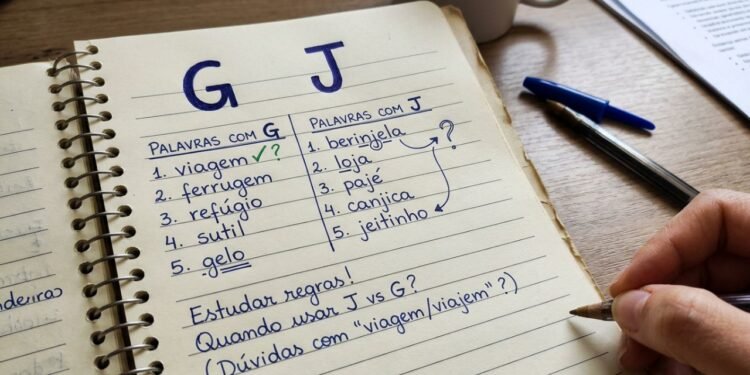 G J
PALAVRAS COM G
1. viagem ✓?
2. ferrugem
3. refúgio
4. sutil
5. gelo
PALAVRAS COM J
1. berinjela ?
2. loja
3. pajé
4. canjica
5. jeitinho
Estudar regras!
Quando usar J vs G?
(Dúvidas com "viagem/viajem"?)